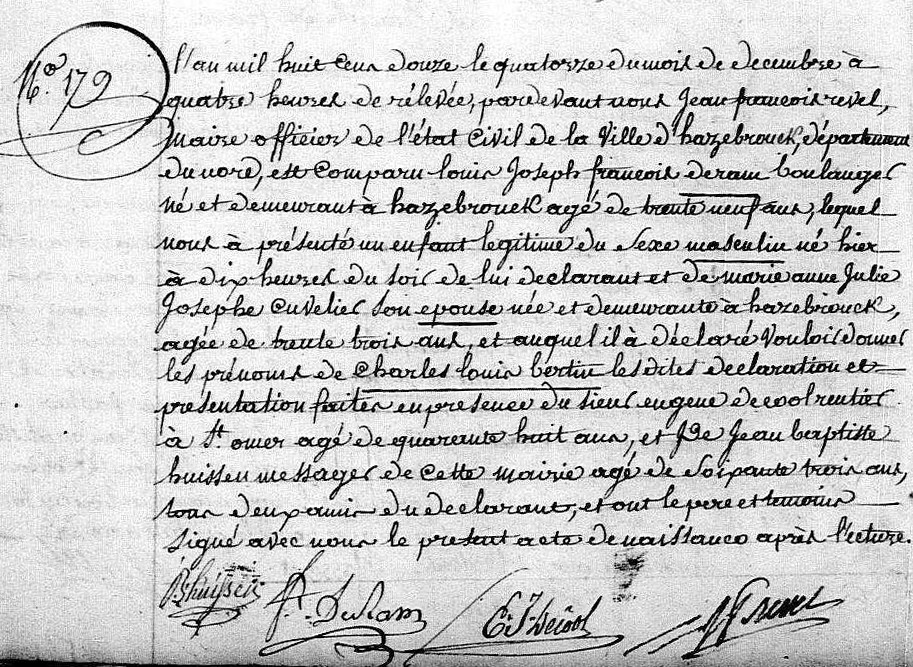 N.o 179
l'an mil huit cens douze le quatorze du mois de decembre à
quatre heures de rélevée, pardevant nous Jean francois revel,
maire officier de l'état Civil de la Ville d'hazebrouck, département
du nord, est Comparu louis Joseph francois deram boulanger
né et demeurant à hazebrouck agé de trente neuf ans, lequel
nous à présenté un enfant legitime du Sexe masculin né hier
à dix heures du soir de lui declarant et de marie anne Julie
Josephe Cuvelier Son epouse née et demeurante à hazebrouck,
agée de trente trois ans, et auquel il à déclaré Vouloir donner
les prénoms de Charles louis bertin les dites declaration et
presentation faites en presence du sieur eugene decool rentier
à St. omer agé de quarante huit ans, et Jean baptiste
huissen messager de Cette mairie agé de Soixante trois ans,
tous deux amis du declarant, et ont le pere et temoins
signé avec nous le present acte de naissance après l'ecture.
B. huissen DeRam E. J. Decool J f revel